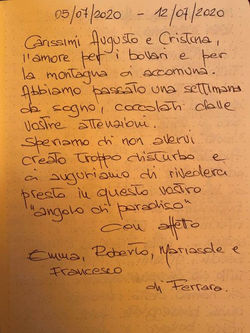 05/07/2020 - 12/07/2020
Carissimi Augusto e Cristina,
l'amore per i bovari e per
la montagna ci accomuna.
Abbiamo passato una settimana
da sogno, coccolati dalle
vostre attenzioni.
Speriamo di non avervi
creato troppo disturbo e
ci auguriamo di rivederci
presto in questo vostro
"angolo di paradiso"
Con affetto
Emma, Roberto, Mariasole e
Francesco
di Ferrara.